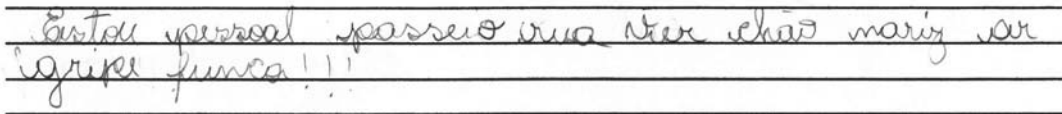 Estou pessoal passeio rua vier chão mariz ar
gripe funca!!!